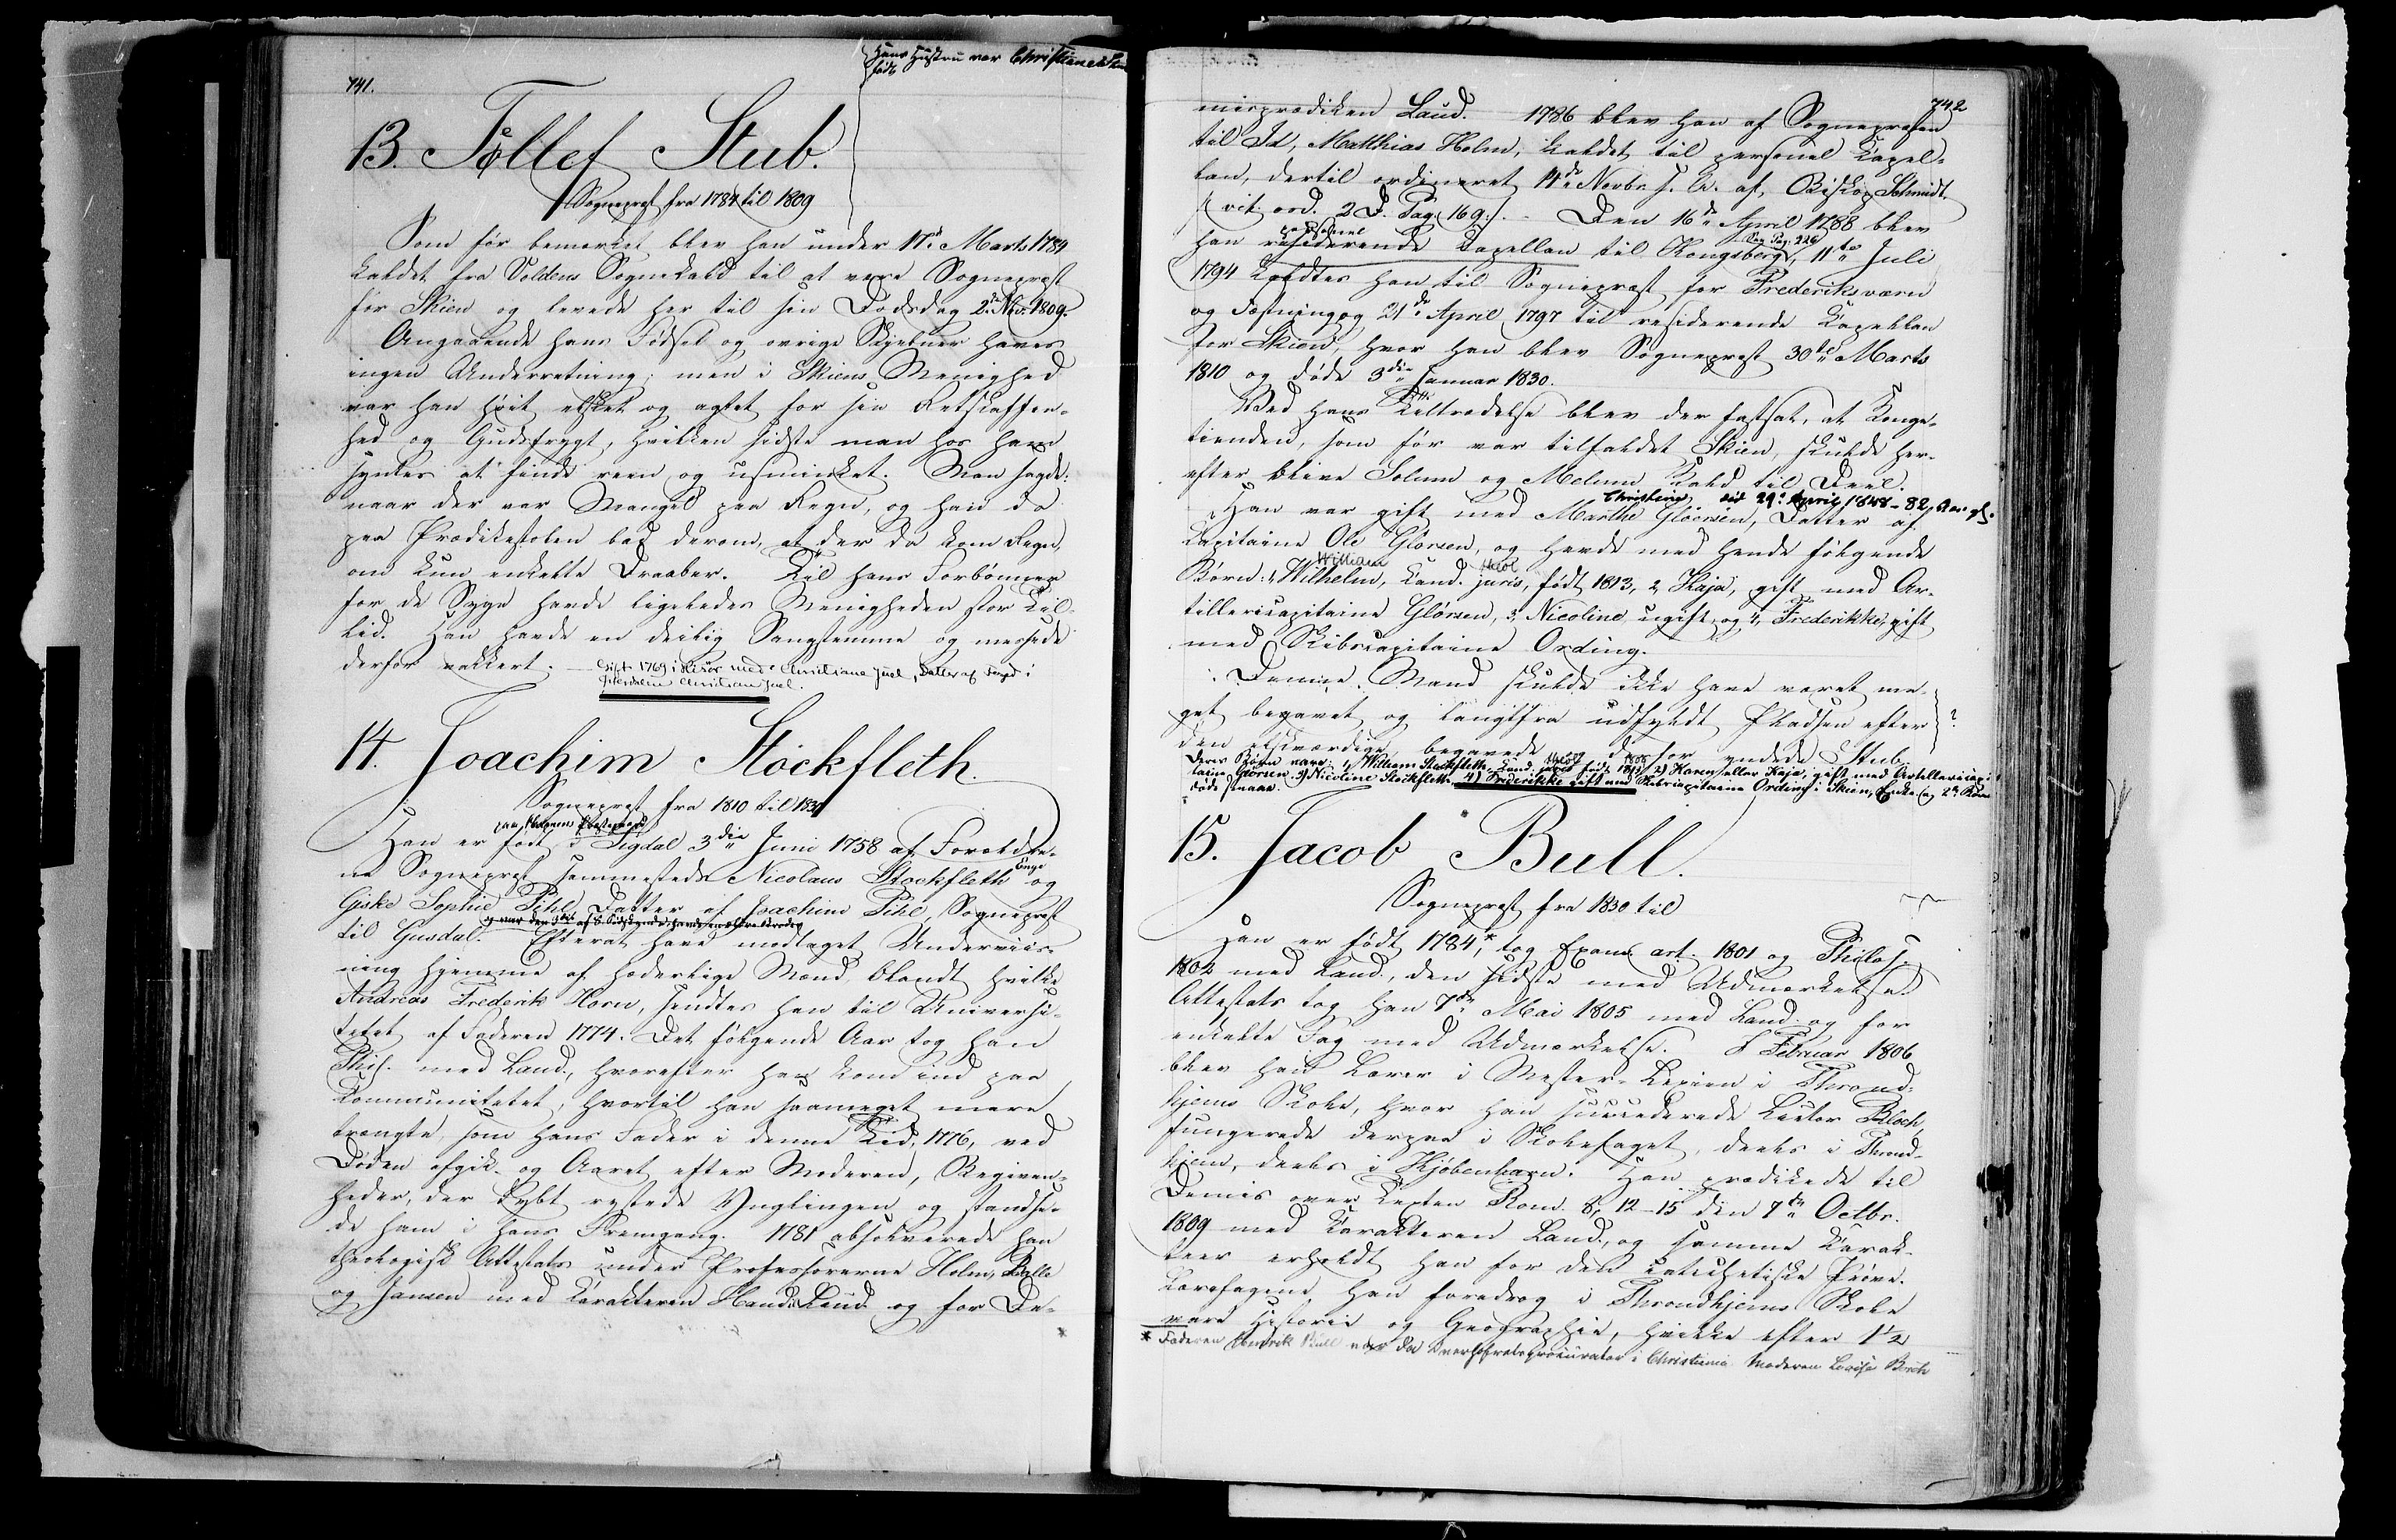 741.
Hans Hustru var Christiane
født
13. Tøllef Stub.
Sognepræst fra 1784 til 1809
Som før bemærket blev han under 17de Marts 1784
kaldet fra Voldens Sognekald til at være Sognepræst
for Skien og levede her til sin Dødsdag 2den Nov. 1809.
Angaaende hans Fødsel og øvrige Skjebner haves
ingen Underretning; men i Skiens Menighed
var han høit elsket og agtet for sin Retskaffen-
hed og Gudsfrygt, hvilken sidste man hos ham
syntes at finde reen og usminket. Man sagde:
naar der var Mangel paa Regn, og han da
paa Prædikestolen bad derom, at der da kom Regn,
om kun enkelte Draaber. Til hans Forbønner
for de Syge havde ligeledes Menigheden stor Til-
lid. Han havde en deilig Sangstemme og messede
derfor vakkert. — Gift 1769 i Risør med Christiane Juel, Datter af Foged i
Christian Juel.
14. Joachim Stockfleth.
Sognepræst fra 1810 til 1830
paa Præstegaard
Han er født i Sigdal 3die Juni 1758 af Forældre-
ne Sognepræst sammesteds Nicolaus Stockfleth og
Giske Sophie Pihl, Datter af Joachim Pihl, Sognepræst
og var den af 8 Sødskende, havde en ældre Broder
til Gusdal. Efterat have modtaget Underviis-
ning hjemme af hæderlige Mænd, blandt hvilke
Andreas Frederik Horn, sendtes han til Universi-
tetet af Faderen 1774. Det følgende Aar tog han
Phil. med Laud., hvorefter han kom ind paa
Kommunitetet, hvortil han saameget mere
trængte, som hans Fader i denne Tid, 1776, ved
Døden afgik og Aaret efter Moderen, Begiven-
heder, der dybt rystede Ynglingen og standse-
de ham i hans Fremgang. 1781 absolverede han
theologisk Attestats under Professorerne Holm, Balle
og Jansen med Karakteren Haud Laud. og for De-
742
misprædiken Laud. 1786 blev han af Sognepræsten
til Id, Matthias Holm, kaldet til personel Kapel-
lan, dertil ordineret 11te Novbr. s. A. af Biskop Schmidt,
(vit. ord. 2 D. Pag. 169.). - Den 16de April 1788 blev
personel
han residerende Capellan til Kongsberg, 11te Juli
Pag. 226
1794 kaldtes han til Sognepræst for Frederiksværn
og Fæstning og 21de April 1797 til residerende Kapellan
for Skien, hvor han blev Sognepræst 30te Marts
1810 og døde 3die Januar 1830.
Ved hans Tiltrædelse blev der fastsat, at Konge-
tienden, som før var tilfaldet Skien, skulde her-
efter blive Solum og Melum Kald til Deel.
Christine død 29. April 1848 - 82 Aar gl.
Han var gift med Marthe Gløersen, Datter af
Kapitaine Ole Glørsen, og havde med hende følgende
William theol
Børn: 1, Wilhelm, Cand. juris, født 1813, 2, Kaja, gift med Ar-
tillericapitaine Glørsen, 3, Nicoline, ugift, og 4, Frederikke, gift
med Skibscapitaine Ording.
Denne Mand skulde ikke have været me-
get begavet og langtfra udfyldt Pladsen efter ?
den elskværdige, begavede og derfor yndede Stub.
Deres Børn vare: 1, William Stockfleth, Cand. theol født 2) Karen eller Kaja, gift med Artillericapi-
taine Glørsen. 3) Nicoline Stockfleth. 4) Frederikke gift med Skibscapitaine Ording i Skien, Enke
døde smaae.
15. Jacob Bull.
Sognepræst fra 1830 til
Han er født 1784,* tog Exam. art. 1801 og Philos.
1802 med Laud., den sidste med Udmærkelse.
Attestats tog han 7de Mai 1805 med Laud. og for
enkelte Fag med Udmærkelse. I Februar 1806
blev han Lærer i Mester-Lexien i Thrond-
hjems Skole, hvor han succederede Lector Bloch,
fungerede derpaa i Skolefaget, deels i Thrond-
hjem, deels i Kjøbenhavn. Han prædikede til
Demis over Texten Rom. 8, 12-15 den 7de Octbr.
1809 med Karakteren Laud., og samme Karak-
teer erholdt han for den catechetiske Prøve.
Lærefagene han foredrog i Throndhjems Skole
vare Historie og Geographie, hvilke efter 1½
* Faderen Henrik Bull var da Overhofretsprocurator i Christiania Moderen Lovise Borch